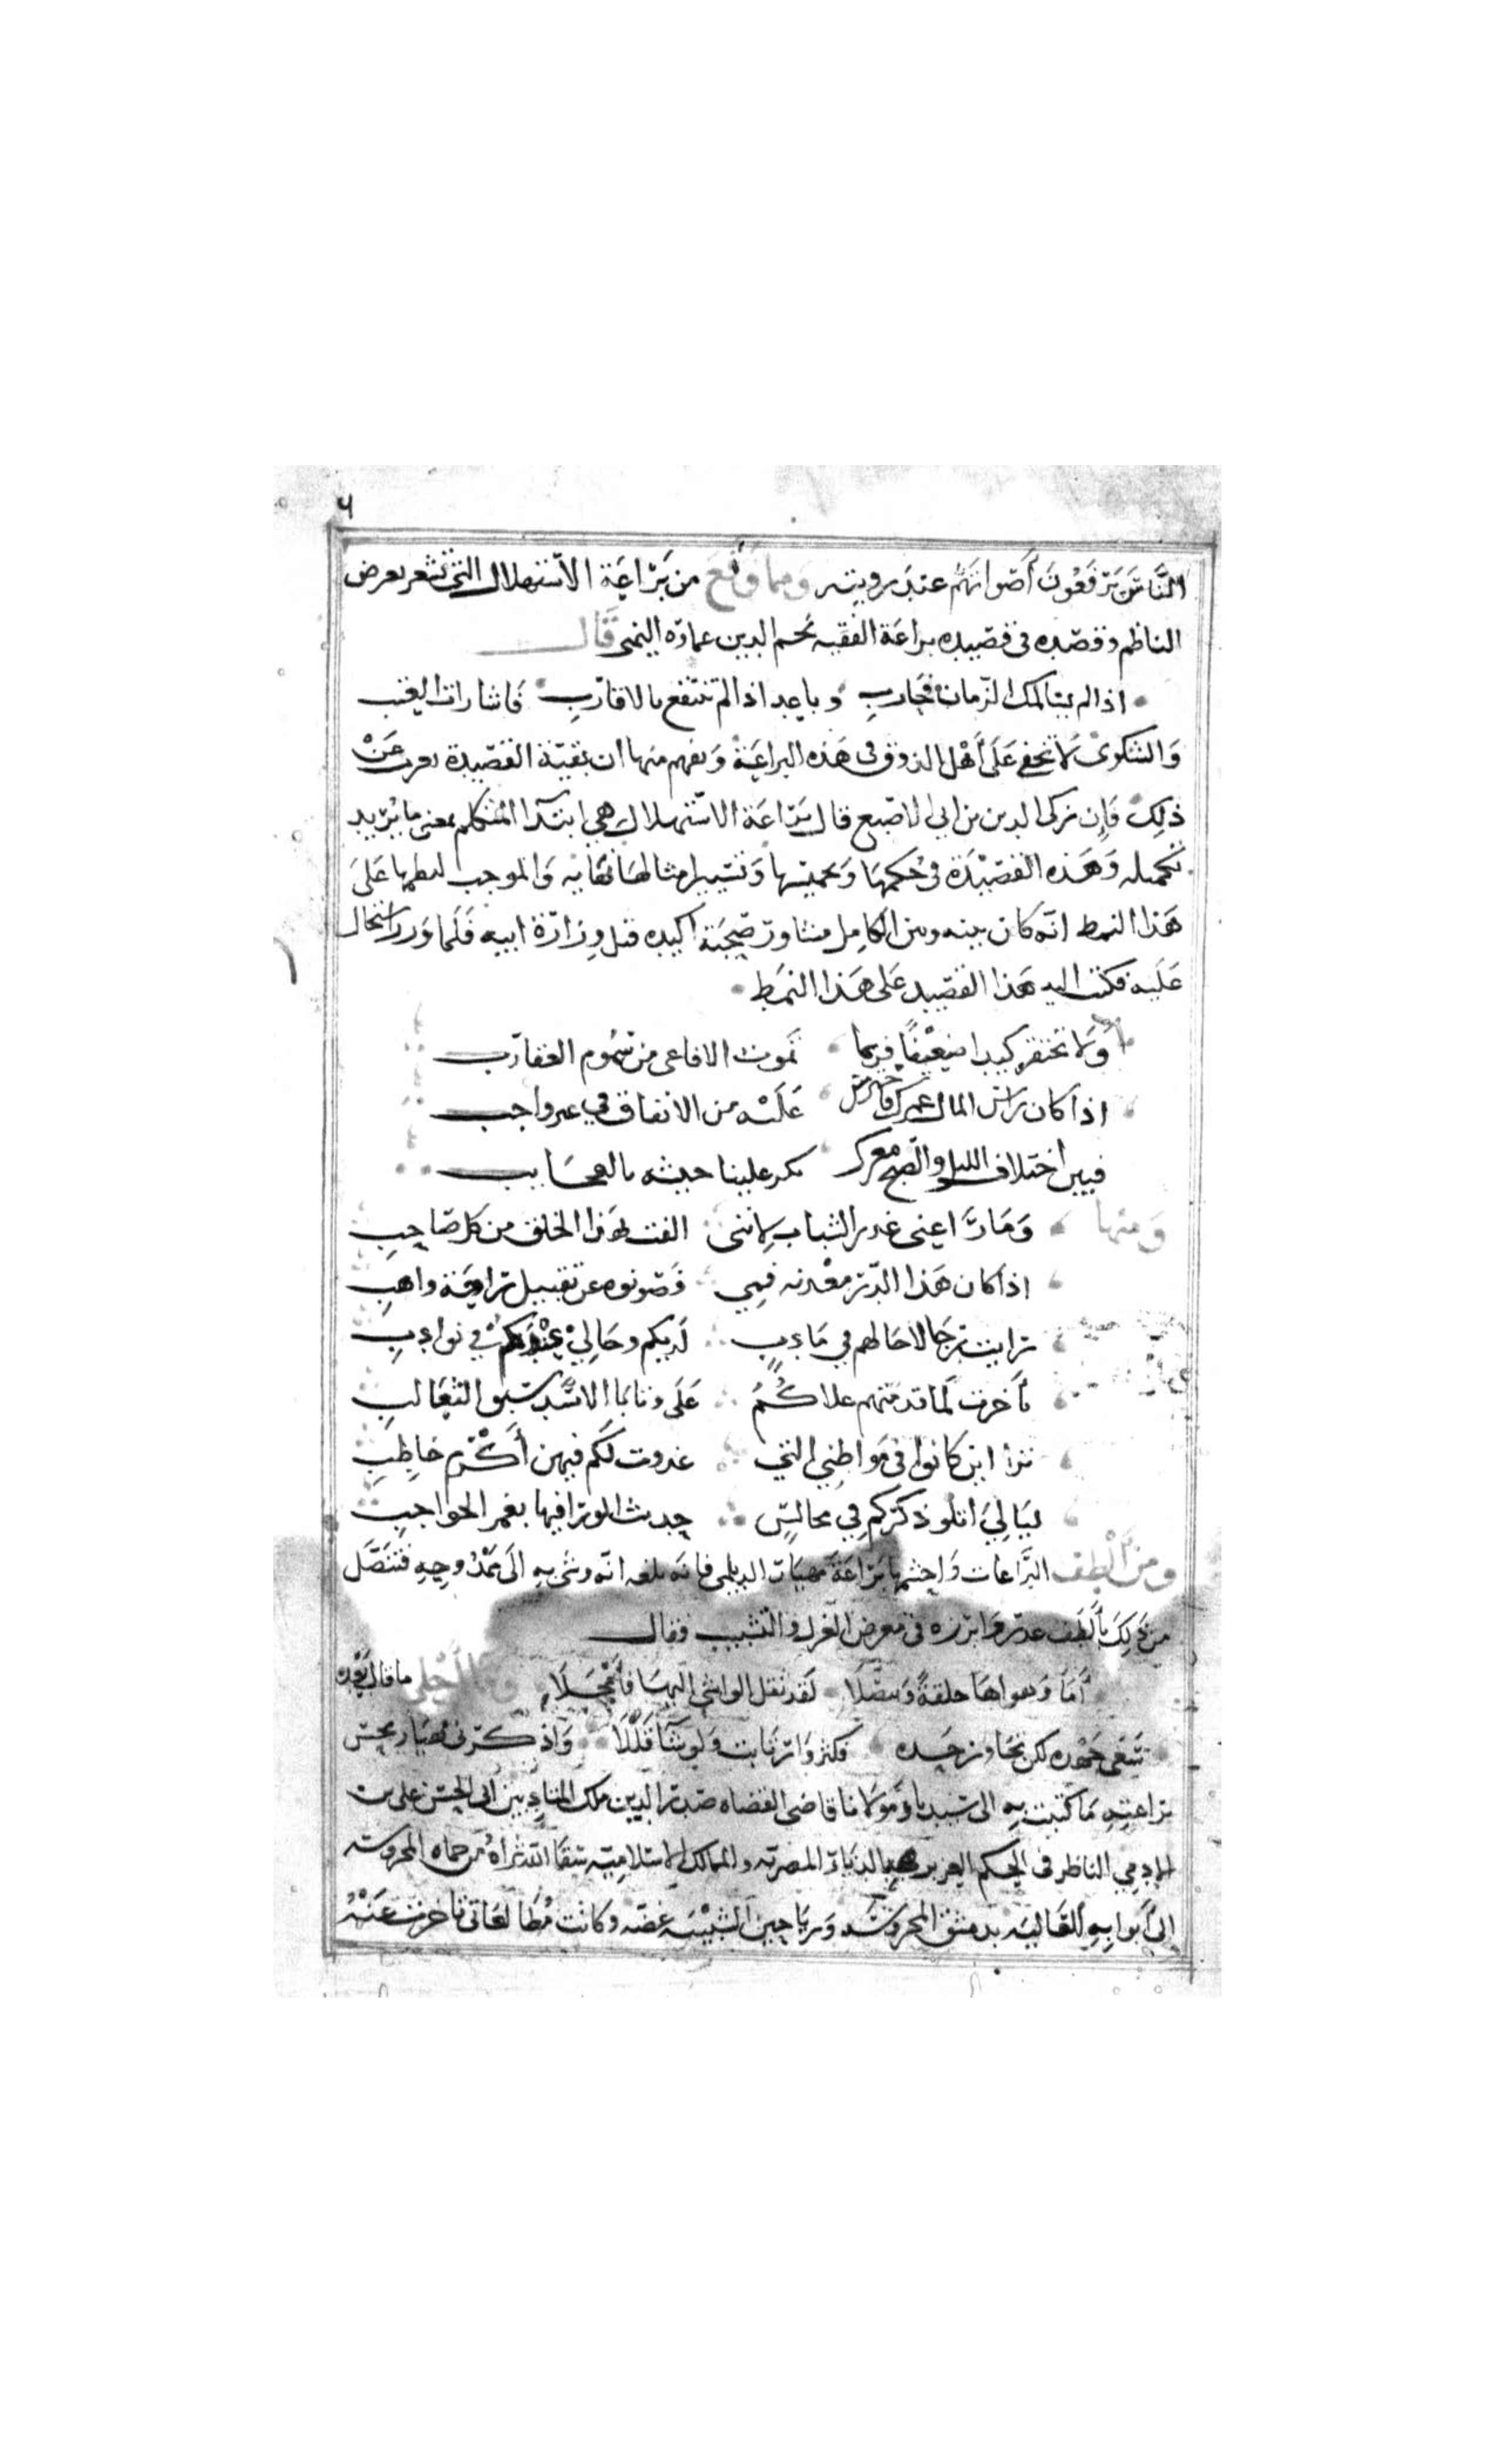 ٦
النَّاسَ يَرفَعُونَ أَصْواتَهُم عند رويته وَمما وَقَعَ من بَرَاعَة الاستهلال التي تشعر بغرض
الناظم وقصده في قصيده براعة الفقيه نجم الدين عمارة اليمني قَالَ
اذا لم يسالمك الزمان فحاربِ وباعد اذا لم تنتفع بالاقاربِ فاشارات العتب
وَالشكوى لا تخفى عَلَى أَهْل الذوق في هَذه البراعَة وَيفهم منها ان بقيّة القصيدة تعرب عَنْ
ذلِكَ فَإن زكى الدين بن ابي الاصبع قال بَرَاعَة الاستهلال هي ابتدا المتكلم بمعنى ما يُريد
تكميله وَهَذه القصيدَة في حُكمهَا وَتحميسها وَتسيير امثالهَا نهَايه وَالموجب لنظمها عَلَى
هَذا النمط انّه كان بينه وبين الكامل بن شاور صحبَة اكيده قبل وزارَة ابيه فَلَما وَزر استحال
عَليه فكتب اليه هَذا القصيد عَلى هَذا النمَط
وَلَا تحتقر كيدا ضعيْفًا فربما تموت الافاعي من سُموم العقارب
اذا كان راس المال عمرك فاحترس عَلَيْه من الانفاق في غير واجب
فبين اختلاف الليل والصبح معرك يكر علينا جيشه بالعجَايب
وَمنها وَمَا رَاعني غدر الشباب لانني الفت لهَذا الخلق من كل صَاحِبِ
اذا كان هَذا الدّر معْدنه فمِي فَصونوه عن تقبيل رَاحَة واهبِ
رايت رجَالا حَالهم في مَادبٍ لَديكم وحَالِيْ عِنْدَكم في نوادبِ
تأَخرت لَما قدمتهم علاكُمُ عَلَى وتابا الاسْد سَبق الثعَالبِ
ترا اين كانوا في مَواطِني التي غدوت لَكم فيهن أَكْرَم خاطِبِ
ليَالِيَ اتلو ذكركم في مجالسٍ حديث الورا فيها بغمز الحواجبِ
وَمن أَلْطف البَراعَات وَاحشمها بَرَاعَة مهيَار الديلمي فانّه بلغه انّه وشى بهِ الَى مَمْدُوحِهِ فتَنَصَّل
من ذَلِكَ بأَلطَف عذر وَابرزه في معرض الغزل والتشبيب فقال
أَمَا وَهواهَا حلفَةً وَتنصُّلَا لَقد نقل الواشي اليهَا فأَمْحَلَا وَمَا أَحْلى ما قال بَعْده
سَعَى جهْده لكن تجَاوز حَده فكثر وَارتَابت وَلو شَآ قَلَّلَا وَاذكرني مهيَار بحسْن
براعتِهِ مَا كتبت بِهِ الى سَيدنا وَمولَانا قاضي القضاه صَدر الدين ملك المتادّبين ابى الحسَن على بن
الادمِي الناظر في الحكم العزيز بالديَار المصريّه والممالك الاسلاميّه سَقَا الله ثرَاهُ من حماه المحروسَه
الى أَبوابِهِ العَاليَه بدمشق المحروسَه وَرياحين الشبيْبَه غضّه وكانت مُطَالعَاتي تاخرت عَنْهُ